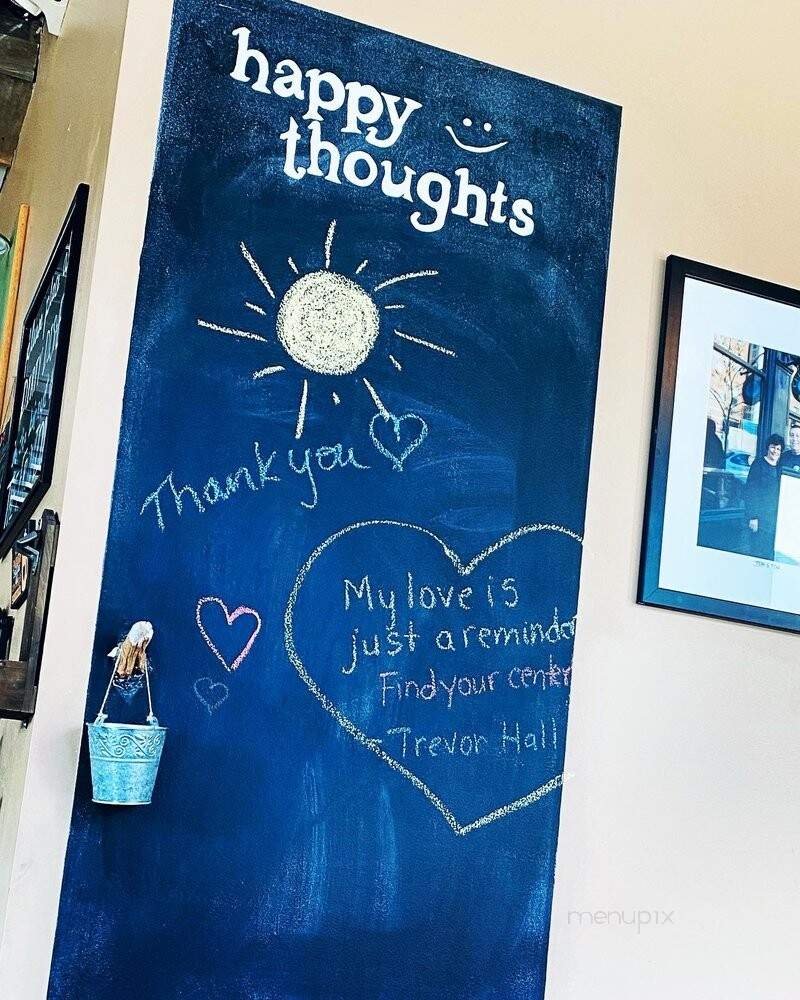 happy
thoughts
Thank you
My love is
just a reminder
Find your center
Trevor Hall
menupix